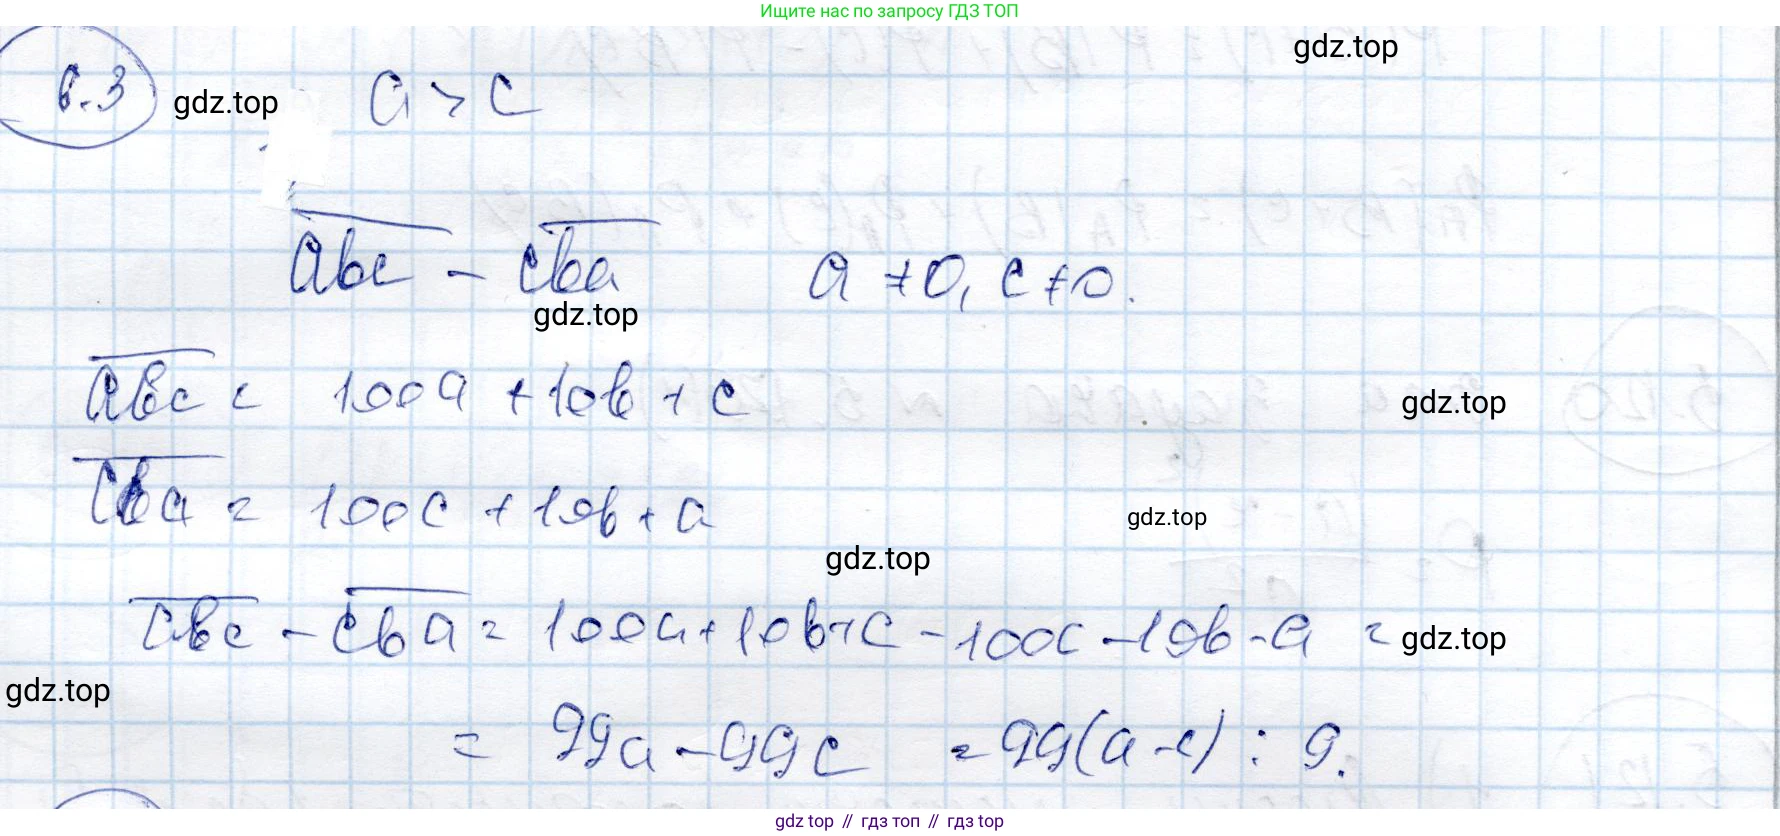 Ищите нас по запросу ГДЗ ТОП
gdz.top
6.3 gdz.top a > c
abc - cba a ≠ 0, c ≠ 0.
gdz.top
abc = 100a + 10b + c gdz.top
cba = 100c + 10b + a
gdz.top
gdz.top
cbc - cba = 100a + 10b + c - 100c - 10b - a = gdz.top
gdz.top
= 99a - 99c = 99(a - c) ⋮ 9.
gdz top // гдз топ // гдз top